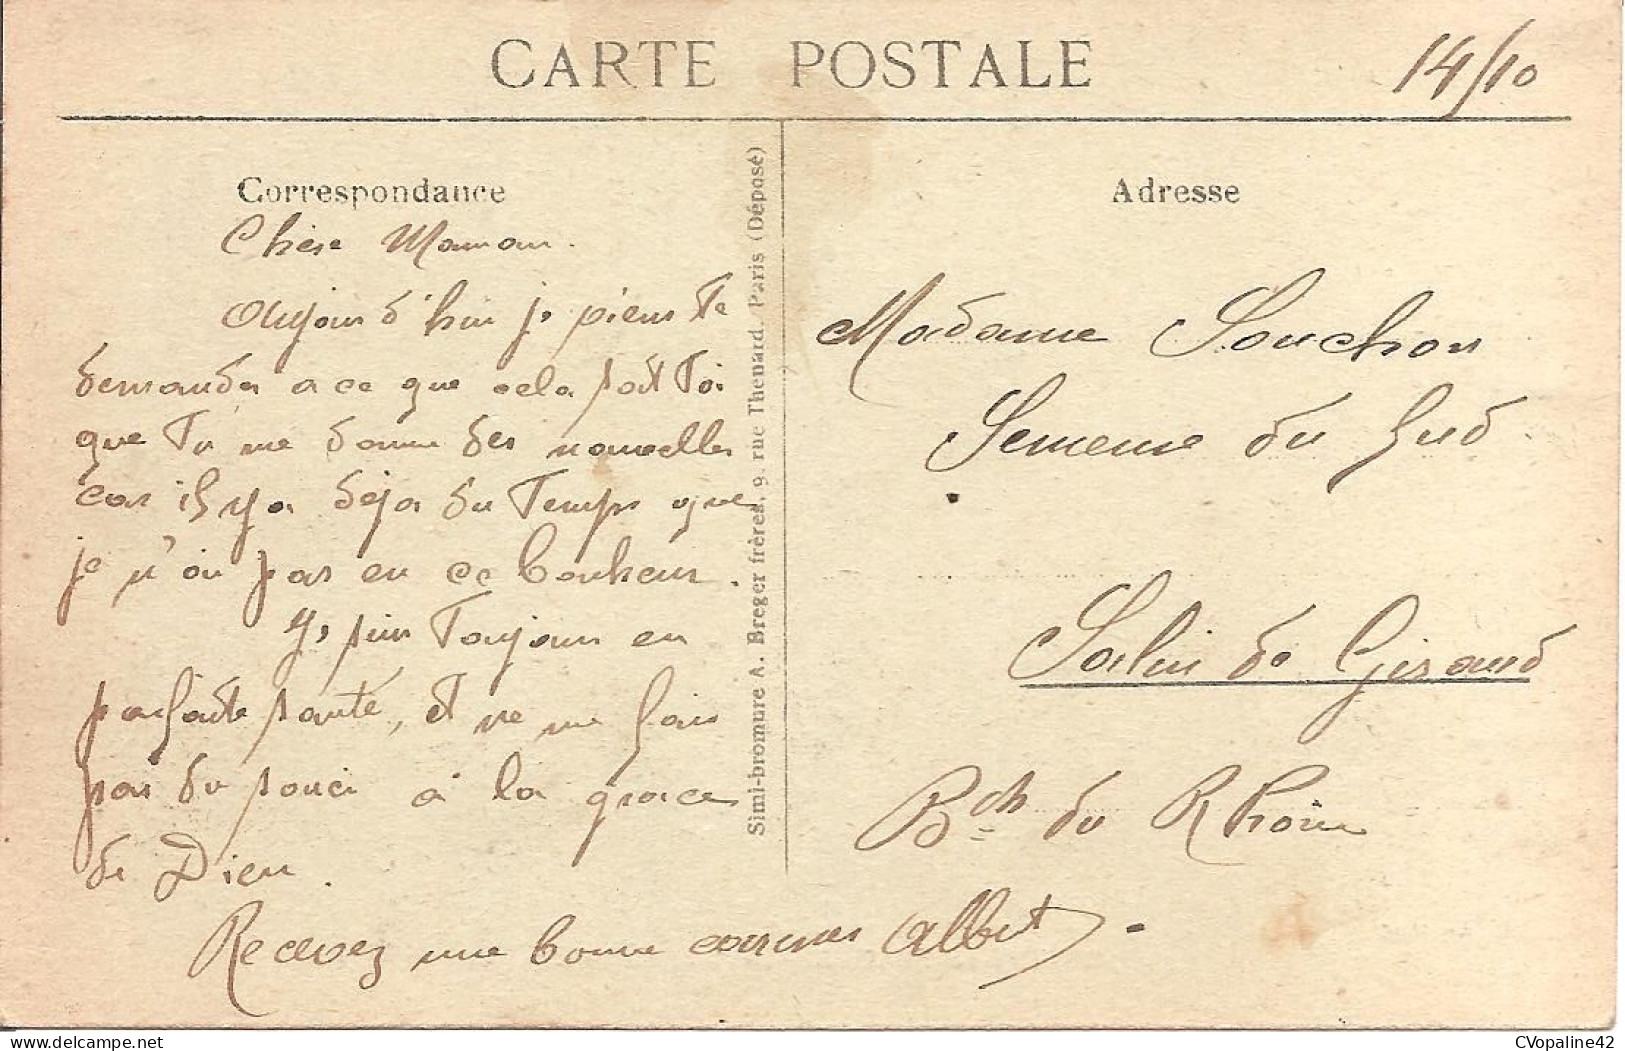 CARTE POSTALE
14/10
Correspondance
Chère Maman.
Aujourd'hui je viens te
demander a ce que cela soit toi
que tu me donne des nouvelles
car il y a déja du temps que
je n'ai pas eu ce bonheur.
Je suis toujours en
parfaite santé, et ne me fais
pas du souci à la grace
de Dieu.
Recevez une bonne caresses Albert
Simi-bromure A. Breger frères, 9, rue Thenard, Paris (Déposé)
Adresse
Madame Souchon
du Sud
Salin de Giraud
Bch du Rhône
CVopaline42
delcampe.net